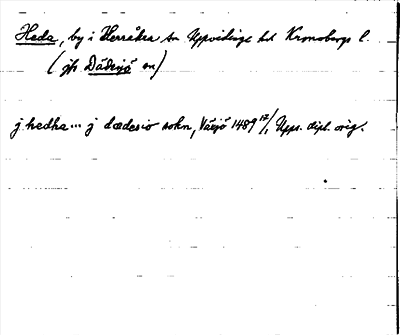 Heda, by i Herråkra sn Uppvidinge hd Kronobergs l.
(jfr Dädesjö sn)
j hedha... j dædesio sokn, Växjö 1489 17/1, Upps. dipl. orig.